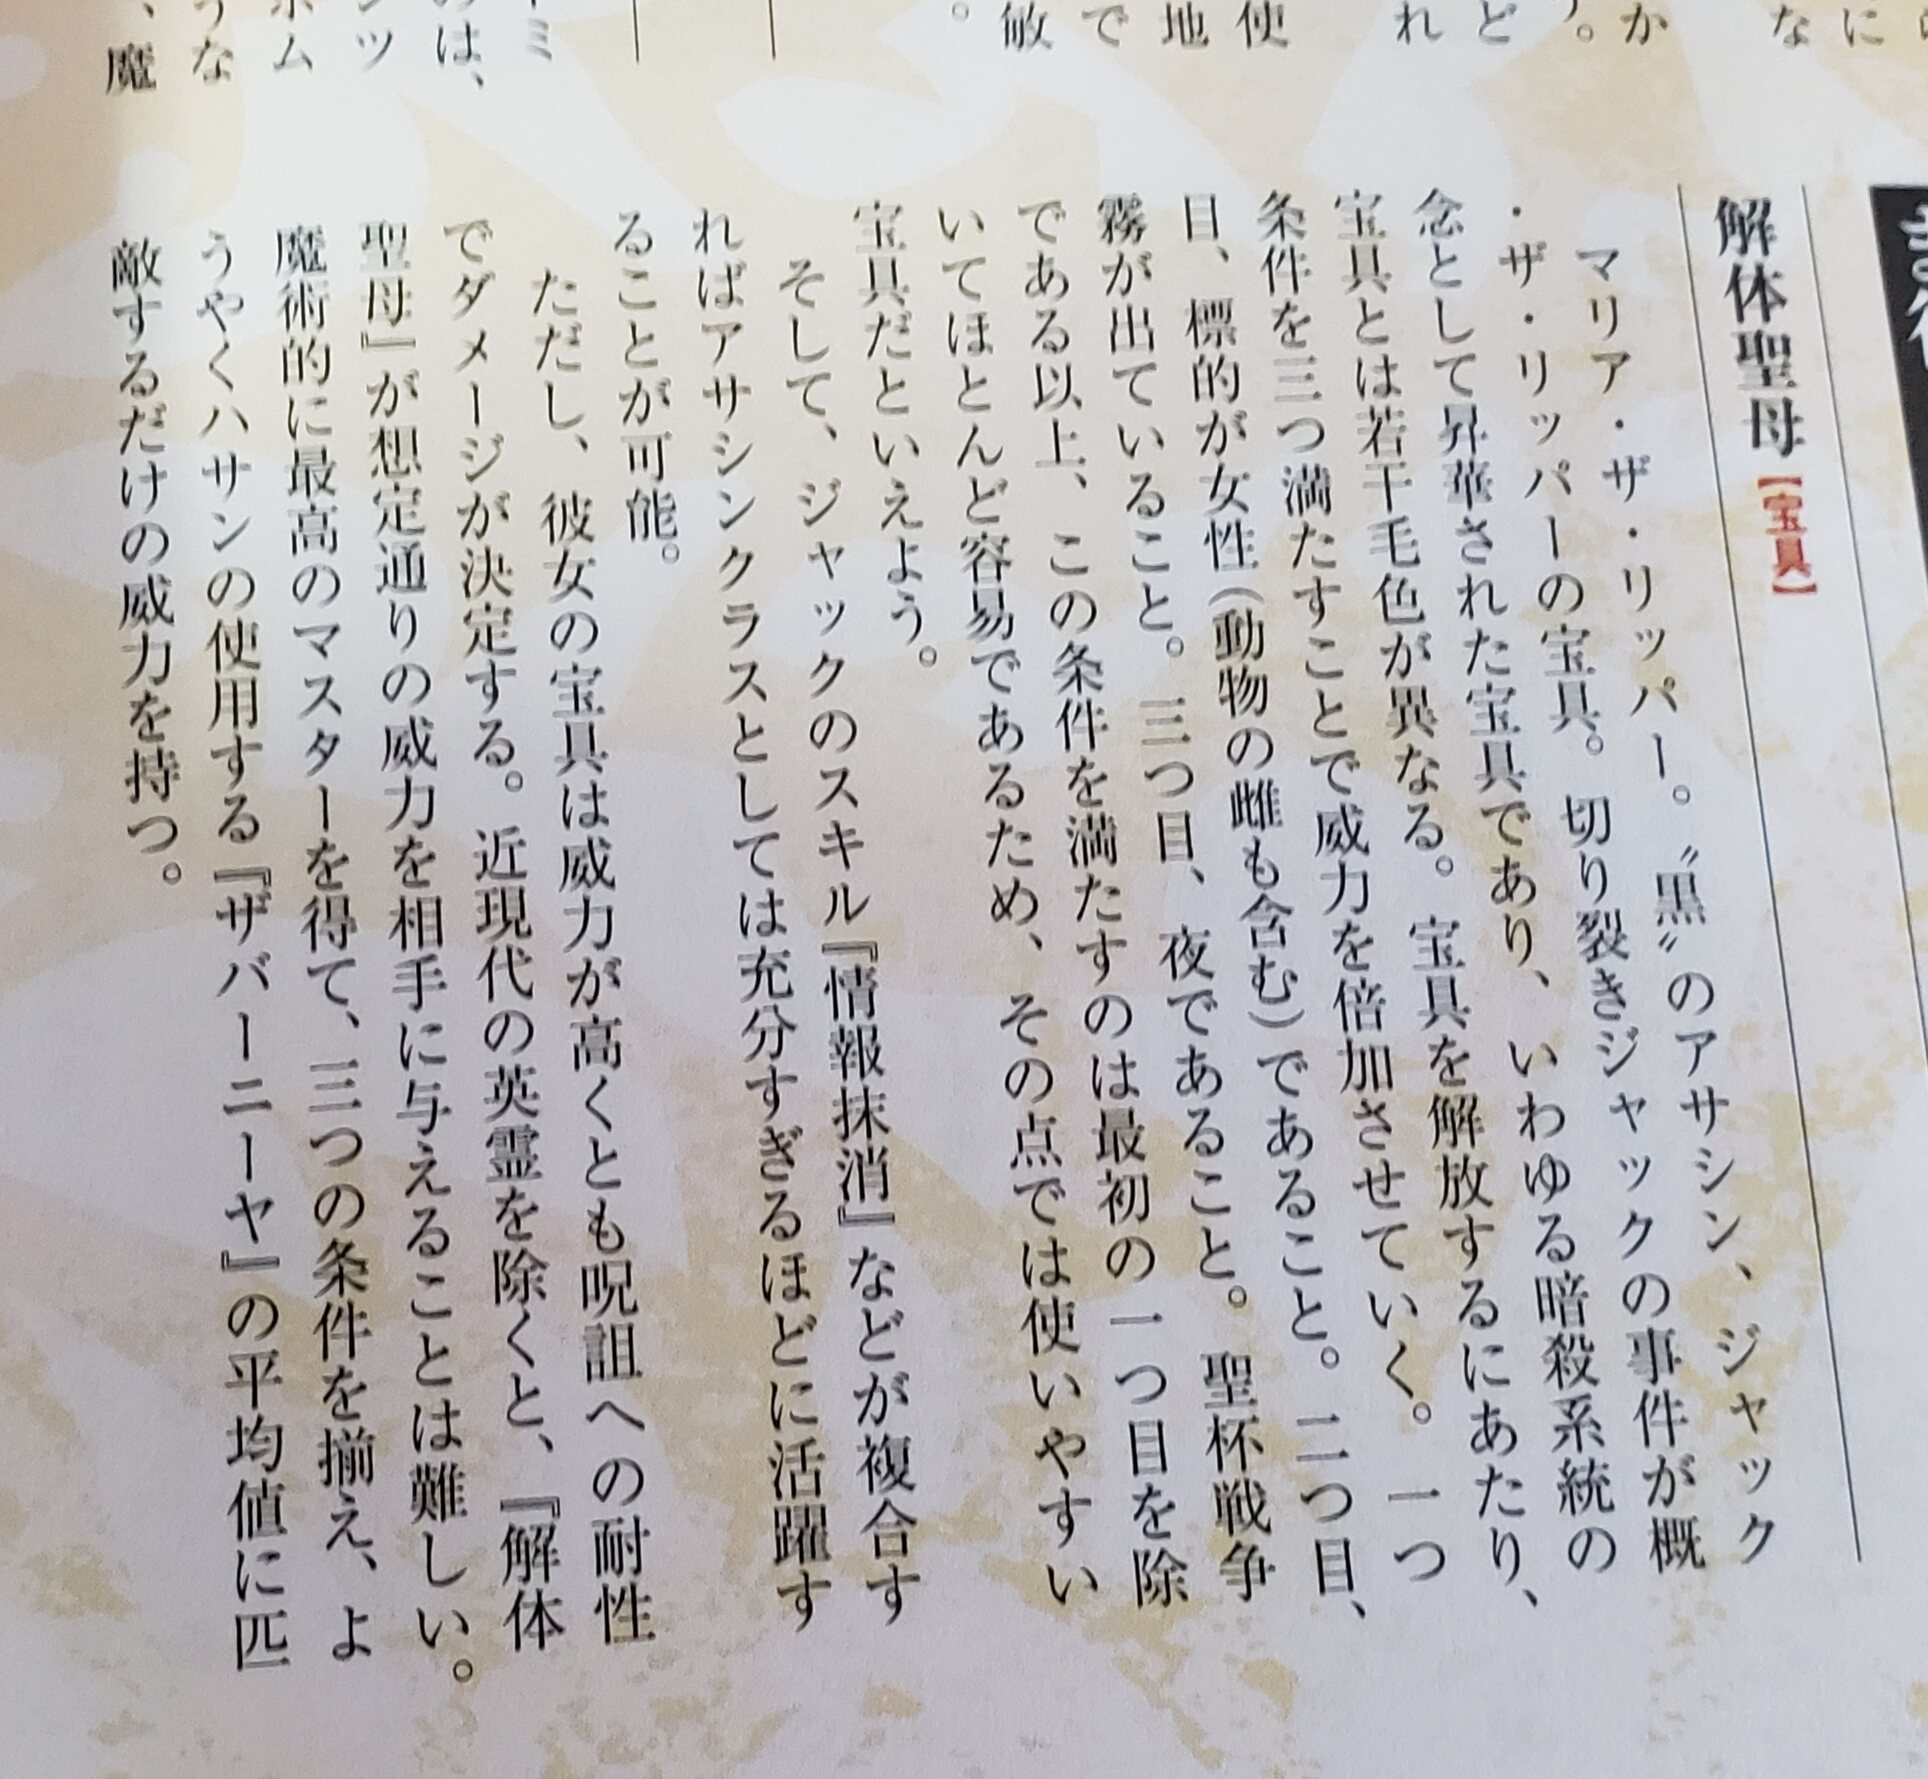 解体聖母【宝具】
マリア・ザ・リッパー。〝黒〟のアサシン、ジャック
・ザ・リッパーの宝具。切り裂きジャックの事件が概
念として昇華された宝具であり、いわゆる暗殺系統の
宝具とは若干毛色が異なる。宝具を解放するにあたり、
条件を三つ満たすことで威力を倍加させていく。一つ
目、標的が女性(動物の雌も含む)であること。二つ目、
霧が出ていること。三つ目、夜であること。聖杯戦争
である以上、この条件を満たすのは最初の一つ目を除
いてほとんど容易であるため、その点では使いやすい
宝具だといえよう。
そして、ジャックのスキル『情報抹消』などが複合す
ればアサシンクラスとしては充分すぎるほどに活躍す
ることが可能。
ただし、彼女の宝具は威力が高くとも呪詛への耐性
でダメージが決定する。近現代の英霊を除くと、『解体
聖母』が想定通りの威力を相手に与えることは難しい。
魔術的に最高のマスターを得て、三つの条件を揃え、よ
うやくハサンの使用する『ザバーニーヤ』の平均値に匹
敵するだけの威力を持つ。